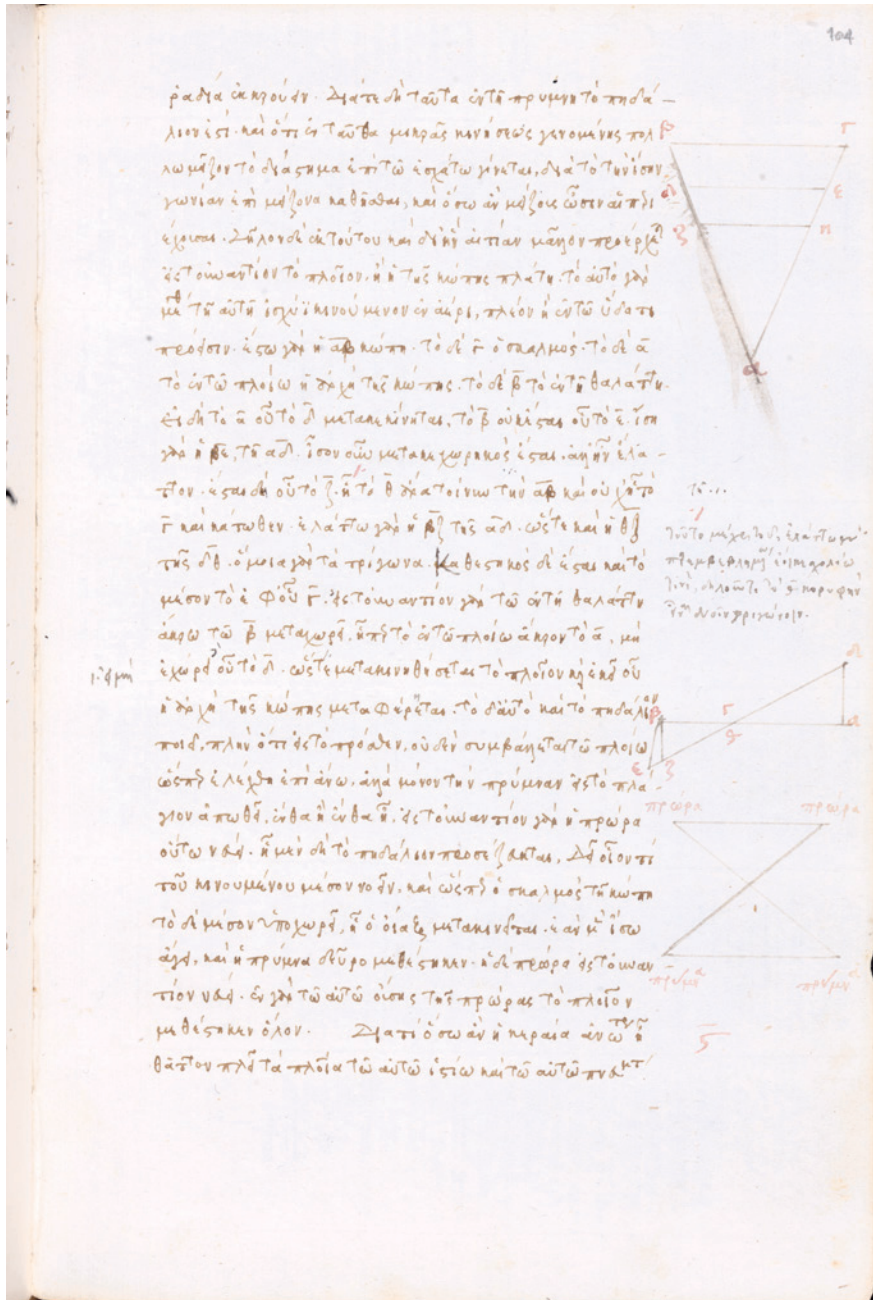 104
ράδια ἐκκρούειν. Διά τε δὴ ταῦτα ἐν τῇ πρύμνῃ τὸ πηδά-
λιόν ἐστι. καὶ ὅτι ἐνταῦθα μικρᾶς κινήσεως γενομένης πολ
λῶ μεῖζον τὸ διάστημα ἐπὶ τῶ ἐσχάτω γίνεται, διὰ τὸ τὴν ἴσην
γωνίαν ἐπὶ μείζονα καθῆσθαι, καὶ ὅσω ἂν μείζους ὦσιν αἱ περι
έχουσαι. Δῆλον δὲ ἐκ τούτου καὶ δι' ἣν αἰτίαν μᾶλλον προέρχεται
εἰς τοὐναντίον τὸ πλοῖον. ἢ ἡ τῆς κώπης πλάτη. τὸ αὐτὸ γὰρ
μέγεθος τῇ αὐτῇ ἰσχύϊ κινούμενον ἐν ἀέρι, πλέον ἢ ἐν τῶ ὕδατι
πρόεισιν. ἔστω γὰρ ἡ αβ κώπη. τὸ δὲ γ ὁ σκαλμός. τὸ δὲ α
τὸ ἐν τῶ πλοίω ἡ ἀρχὴ τῆς κώπης. τὸ δὲ β τὸ ἐν τῇ θαλάττῃ.
εἰ δὴ τὸ α οὗ τὸ δ μετακεκίνηται, τὸ β οὐκ ἔσται οὗ τὸ ε. ἴση
γὰρ ἡ βε, τῇ αδ. ἴσον οὖν μετακεχωρηκὸς ἔσται. ἀλλ' ἦν ἔλα-
ττον. ἔσται δὴ οὗ τὸ ζ. ἢ τὸ θ ἄρα τοίνυν τὴν αβ καὶ οὐχ ἧ τὸ
γ καὶ κάτωθεν. ἐλάττω γὰρ ἡ βζ τῆς αδ. ὥστε καὶ ἡ θζ
τῆς δθ. ὅμοια γὰρ τὰ τρίγωνα. καθεστηκὸς δὲ ἔσται καὶ τὸ
μέσον τὸ ἐφ' οὗ γ. εἰς τοὐναντίον γὰρ τῶ ἐν τῇ θαλάττῃ
ἄκρω τῶ β μεταχωρεῖ, ἧπερ τὸ ἐν τῶ πλοίω ἄκρον τὸ α, μὴ
ἐχώρει οὗ τὸ δ. ὥστε μετακινηθήσεται τὸ πλοῖον κἀκεῖ οὗ
ἡ ἀρχὴ τῆς κώπης μεταφέρεται. τὸ δ' αὐτὸ καὶ τὸ πηδάλιον
ποιεῖ, πλὴν ὅτι εἰς τὸ πρόσθεν, οὐδὲν συμβάλλεται τῶ πλοίω
ὥσπερ ἐλέχθη ἐπὶ ἄνω. ἀλλὰ μόνον τὴν πρύμναν εἰς τὸ πλά-
γιον ἀπωθεῖ, ἔνθα ἢ ἔνθα ῇ. εἰς τοὐναντίον γὰρ ἡ πρώρα
οὕτω νεύει. ᾗ μὲν δὴ τὸ πηδάλιον προσέζευκται, Δεῖ οἷόν τι
τοῦ κινουμένου μέσον νοεῖν. καὶ ὥσπερ ὁ σκαλμὸς τῇ κώπῃ
τὸ δὲ μέσον ὑποχωρεῖ, ᾗ ὁ οἴαξ μετακινεῖται. ἐὰν μὲν ἴσω
ἄγῃ, καὶ ἡ πρύμνα δεῦρο μεθέστηκεν. ἡ δὲ πρώρα εἰς τοὐναν
τίον νεύει. ἐν γὰρ τῶ αὐτῶ οὔσης τῆς πρώρας τὸ πλοῖον
μεθέστηκεν ὅλον. Διατί ὅσω ἂν ἡ κεραία ἀνωτέρα ῇ
θᾶττον πλεῖ τὰ πλοῖα τῶ αὐτῶ ἱστίω καὶ τῶ αὐτῶ πνεύματι
β γ
δ ε
ζ η
α
δ
β γ α
θ
ε ζ
πρώρα πρώρα
πρύμνα πρύμνα
ς